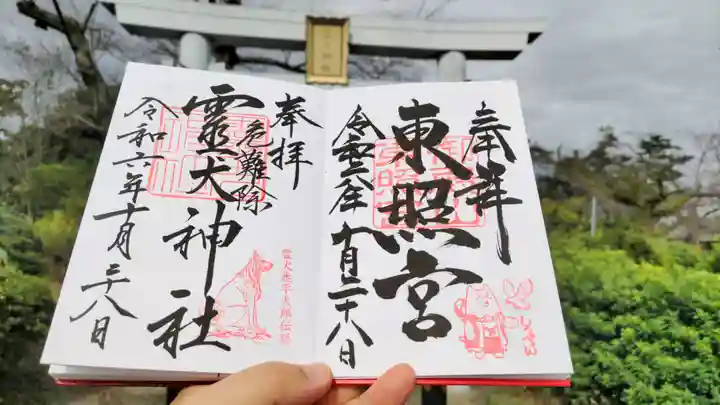 奉拝
東照宮
令和六年十月二十八日
奉拝
危難除
靈犬神社
令和六年十月二十八日